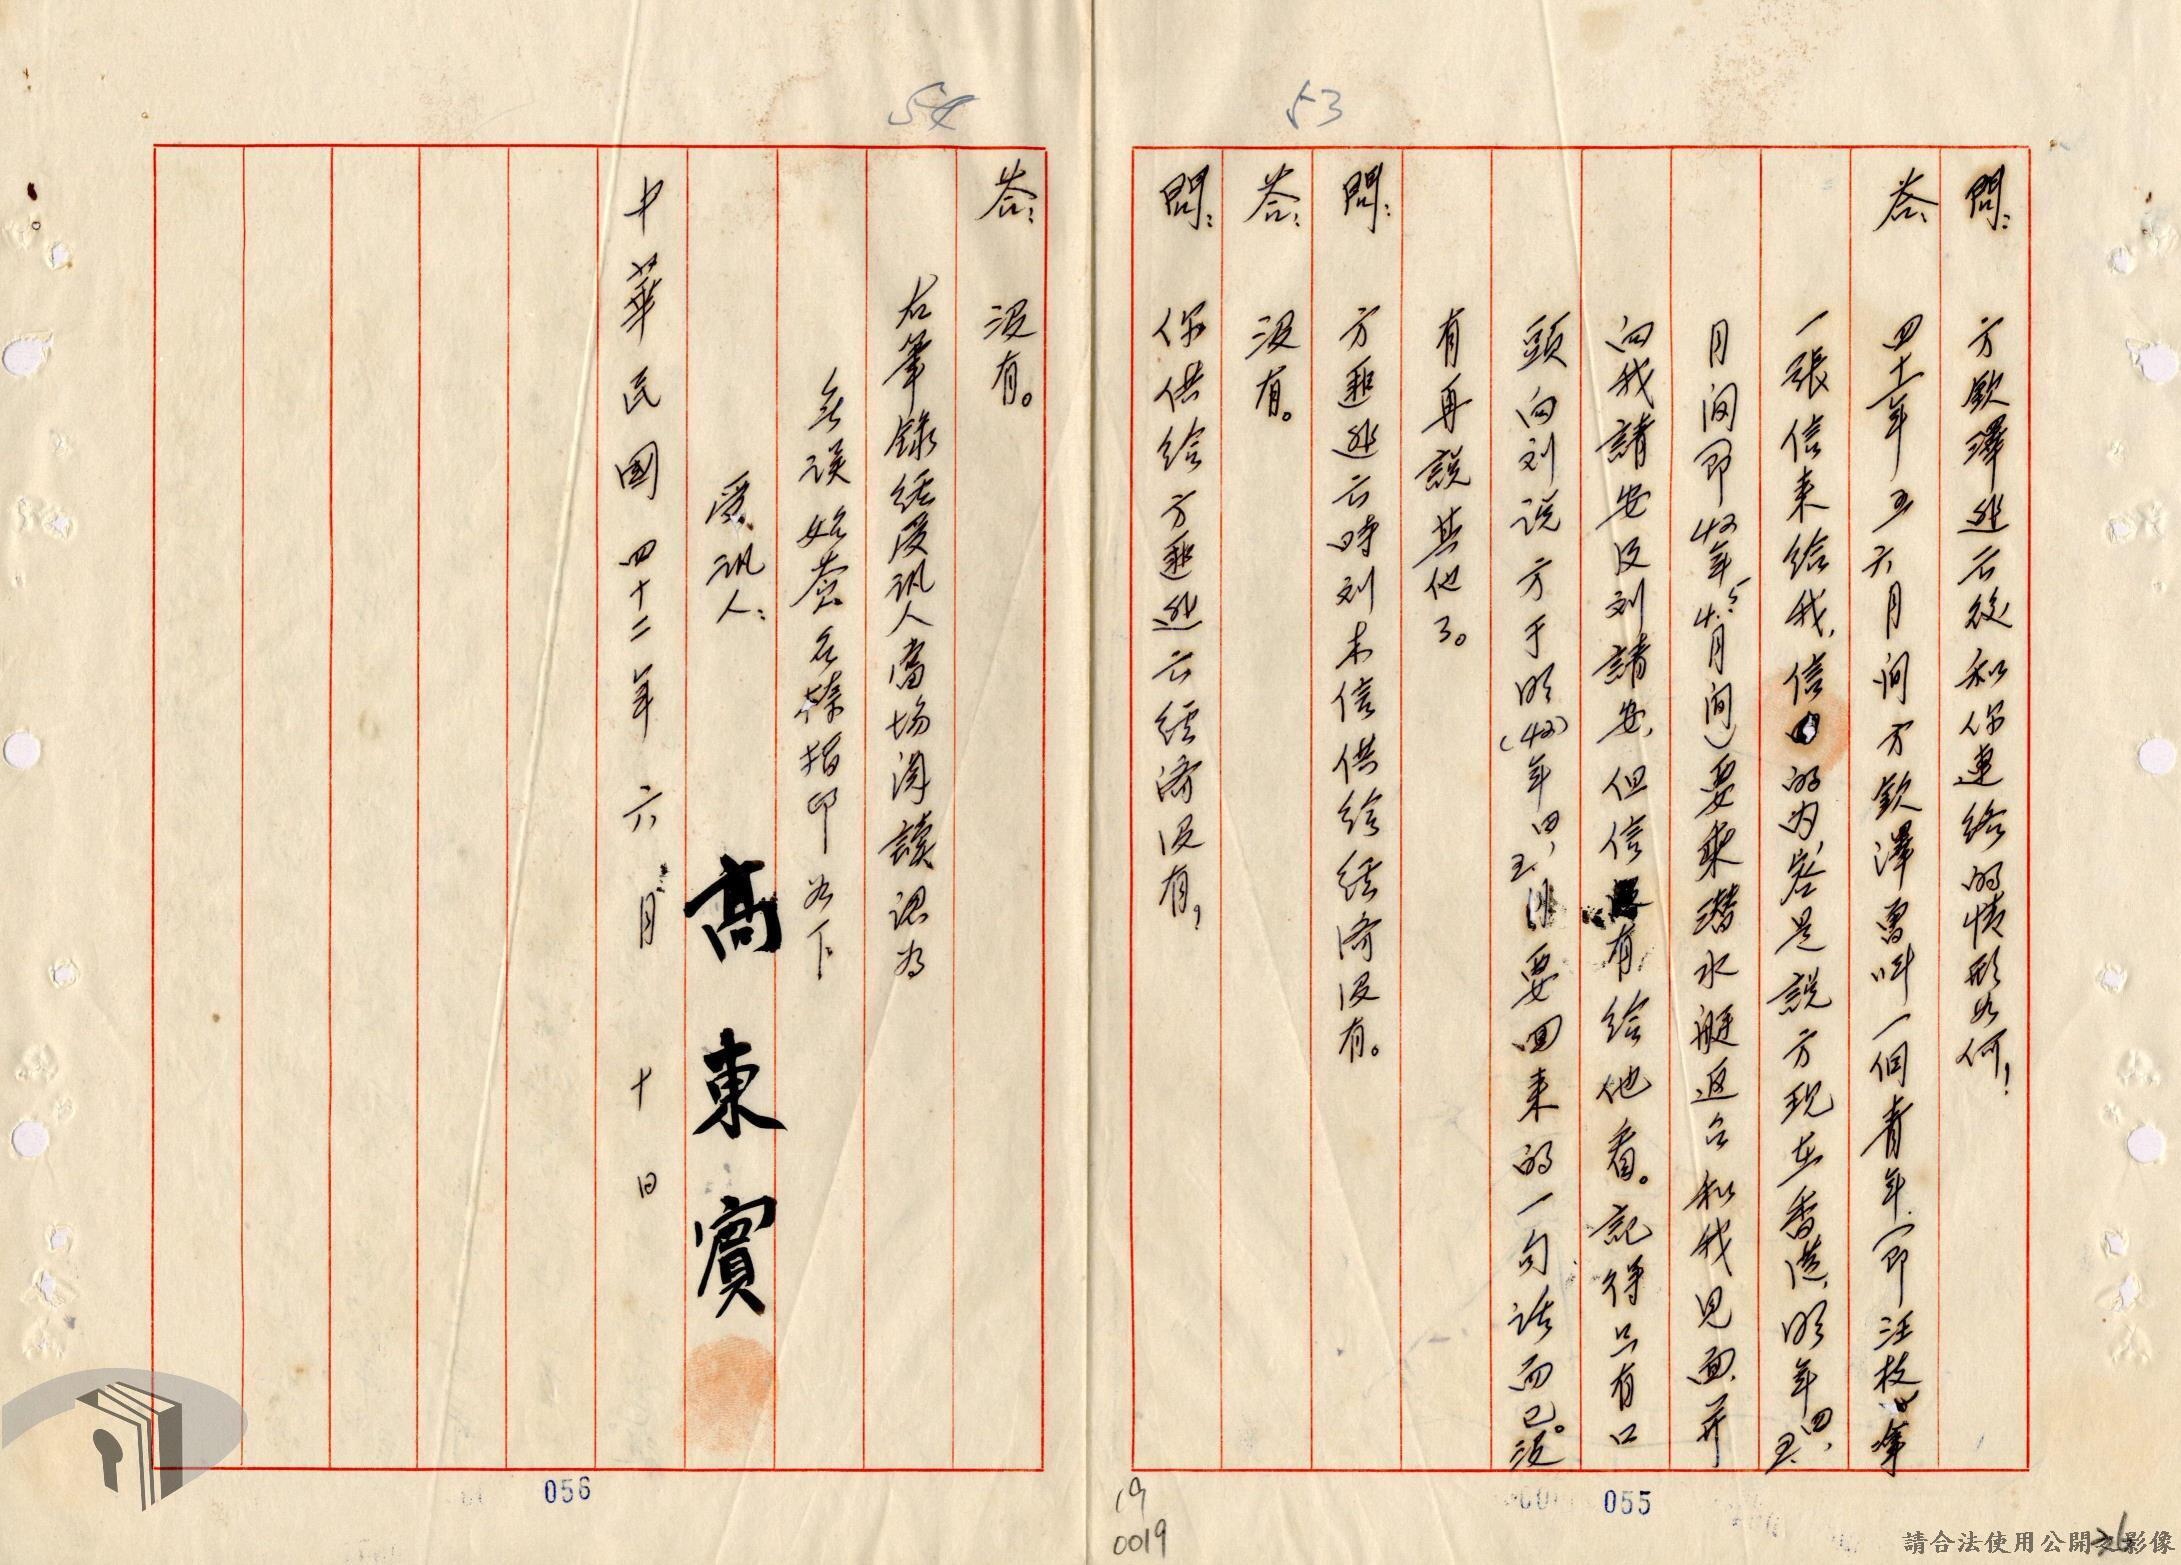 53
問：方欽澤逃亡後和你連絡的情形如何？
答、四十一年五六月间方欽澤曾叫一個青年(即汪枝
一張信来給我，信的内容是説方现在香港，明年四、五
月间即42年4.5月间)要乘潜水艇返台和我見面，并
向我請安及刘請安，但信有給他看。記得只有口
頭向刘说方于明(42)年四，五，月要回来的一句话而已。没
有再説其他了。
問：方匪逃亡時刘木信供給经濟没有。
答：没有。
問：你供给方匪逃亡经濟没有，
055
54
答：没有。
右筆録经受讯人當場閲讀認为
無误始簽名捺指印如下
受讯人：高東賓
中華民國四十二年六月十日
056
19
0019
26
請合法使用公開之影像